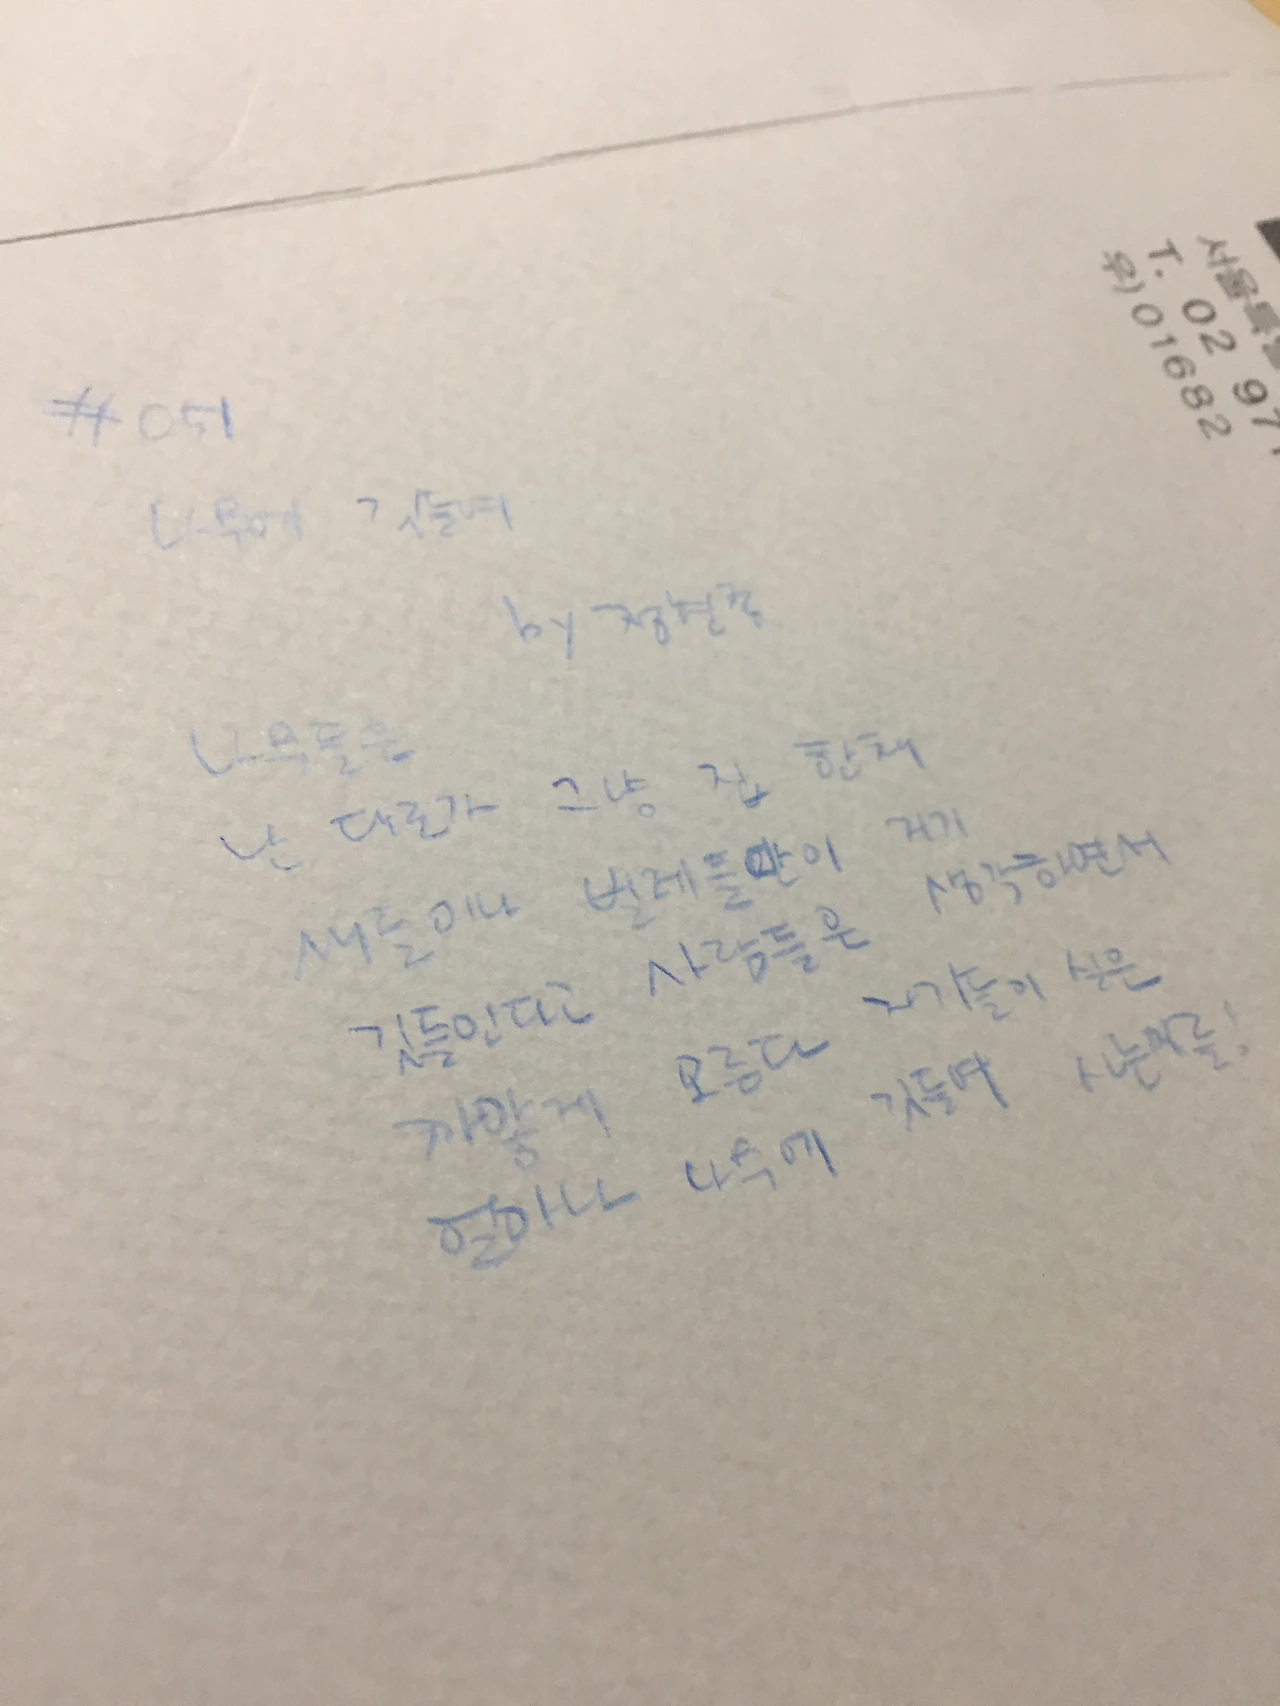 서울특별
T. 02 971
우)01682
#051
나무에 깃들여
by 정현종
나무들은
난 대로가 그냥 집 한채
새들이나 벌레들만이 거기
깃들인다고 사람들은 생각하면서
까맣게 모른다 자기들이 실은
얼마나 나무에 깃들여 사는지를!